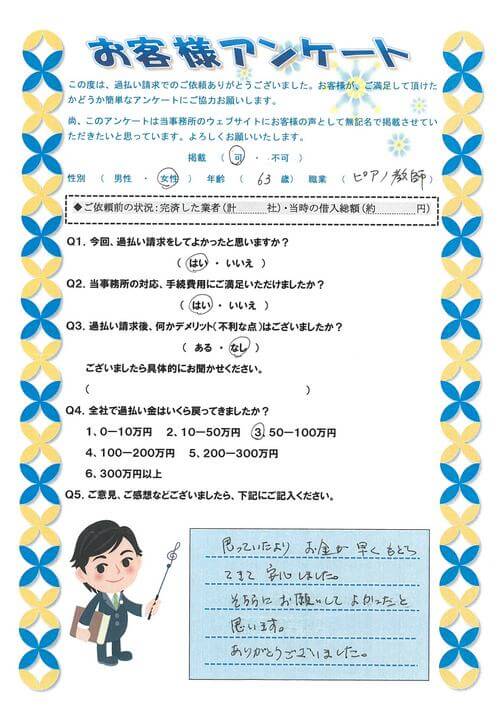 お客様アンケート
この度は、過払い請求でのご依頼ありがとうございました。お客様が、ご満足して頂けた
かどうか簡単なアンケートにご協力お願いします。
尚、このアンケートは当事務所のウェブサイトにお客様の声として無記名で掲載させてい
ただきたいと思っています。よろしくお願いいたします。
掲載 ( 可 ・ 不可 )
性別 ( 男性 ・ 女性 ) 年齢 ( 63 歳) 職業 ( ピアノ教師 )
◆ご依頼前の状況:完済した業者(計 社)・当時の借入総額(約 円)
Q1. 今回、過払い請求をしてよかったと思いますか?
( はい ・ いいえ )
Q2. 当事務所の対応、手続費用にご満足いただけましたか?
( はい ・ いいえ )
Q3. 過払い請求後、何かデメリット(不利な点)はございましたか?
( ある ・ なし )
ございましたら具体的にお聞かせください。
( )
Q4. 全社で過払い金はいくら戻ってきましたか?
1、0-10万円 2、10-50万円 3、50-100万円
4、100-200万円 5、200-300万円
6、300万円以上
Q5. ご意見、ご感想などございましたら、下記にご記入ください。
思っていたより お金が 早くもどっ
てきて 安心しました。
そちらに お願いして よかったと
思います。
ありがとうございました。